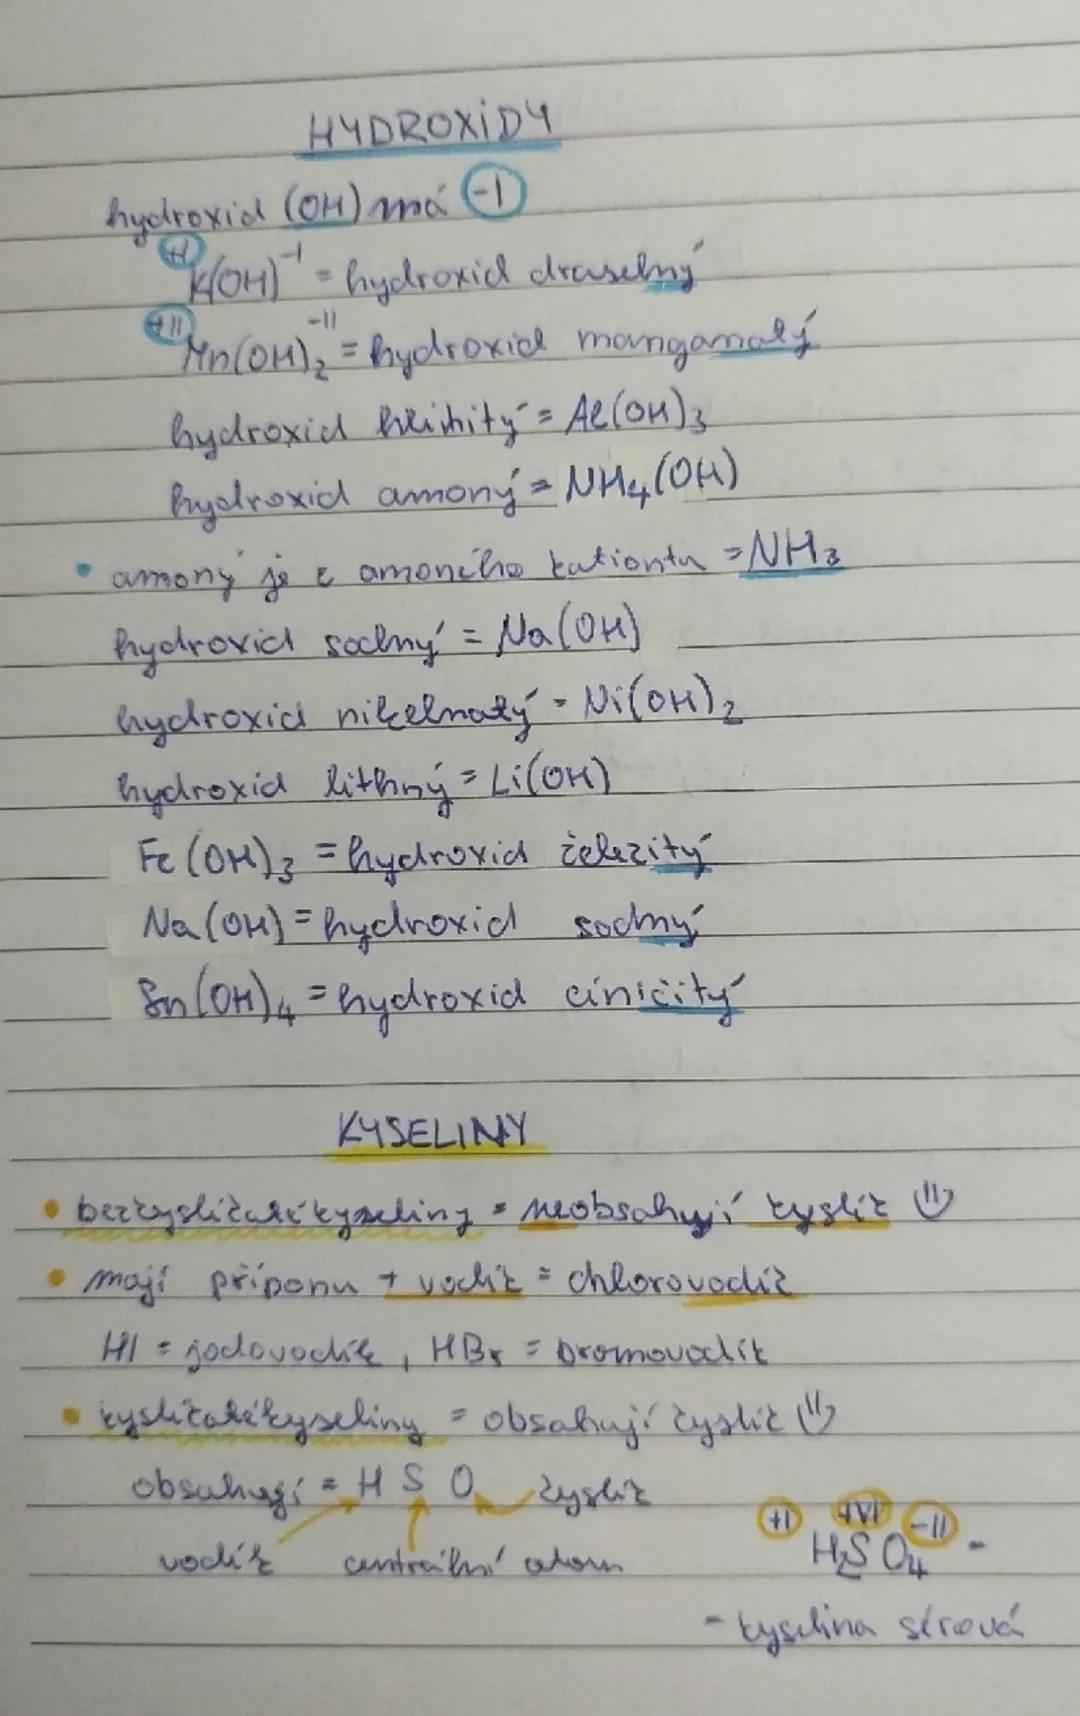 HYDROXIDY
hydroxid (OH) má -I
+I
K(OH)⁻ᴵ = hydroxid draselný
+II -II
Mn(OH)₂ = hydroxid manganatý
hydroxid hlinitý = Al(OH)₃
hydroxid amoný = NH₄(OH)
• amoný je z amoného kationtu = NH₃
hydroxid sodný = Na(OH)
hydroxid nikelnatý = Ni(OH)₂
hydroxid lithný = Li(OH)
Fe(OH)₃ = hydroxid železitý
Na(OH) = hydroxid sodný
Sn(OH)₄ = hydroxid ciničitý
KYSELINY
• bezkyslíkaté kyseliny = neobsahují kyslík
• mají příponu + vodík = chlorovodík
HI = jodovodík, HBr = bromovodík
• kyslíkaté kyseliny = obsahují kyslík
obsahují = H S O kyslík
vodík centrální atom
+I +VI -II
H₂SO₄ -
- kyselina sírová